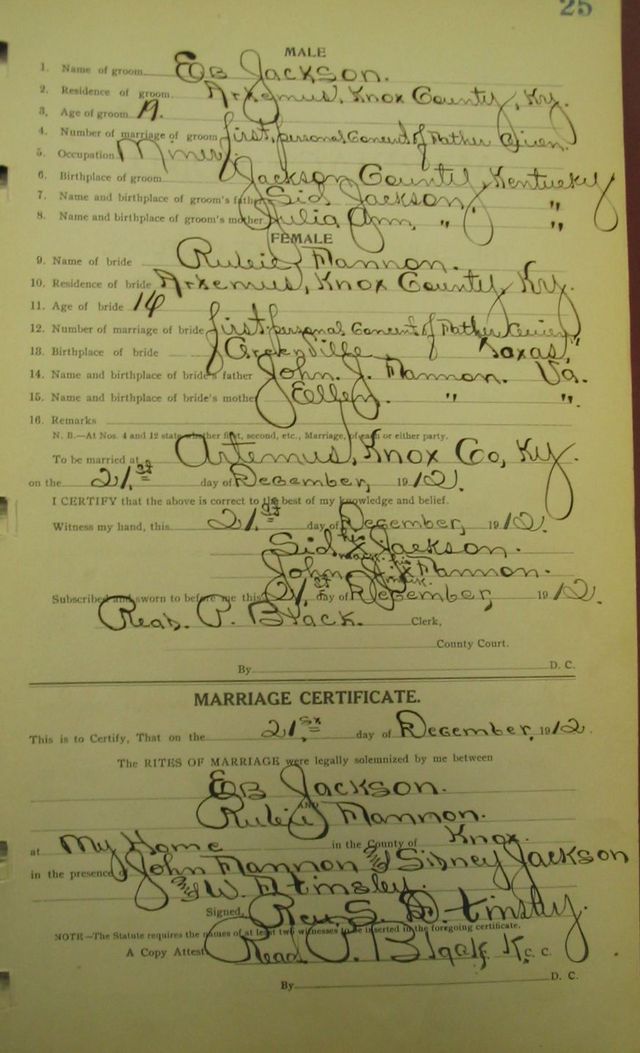 25
MALE
1. Name of groom Eb Jackson.
2. Residence of groom Artemus, Knox County, Ky.
3. Age of groom 19.
4. Number of marriage of groom first, personal Concent of Father Given.
5. Occupation Miner
6. Birthplace of groom Jackson County, Kentucky
7. Name and birthplace of groom's father Sid Jackson, "
8. Name and birthplace of groom's mother Julia Ann, " "
FEMALE
9. Name of bride Rubie Hannon.
10. Residence of bride Artemus, Knox County, Ky.
11. Age of bride 14
12. Number of marriage of bride first, personal Concent of Father Given
13. Birthplace of bride Greenville, Taxas,
14. Name and birthplace of bride's father John. J. Hannon. Va.
15. Name and birthplace of bride's mother Ellen. " ".
16. Remarks
N. B.—At Nos. 4 and 12 state whether first, second, etc., Marriage, of each or either party.
To be married at Artemus, Knox Co, Ky.
on the 21.st day of December, 1912.
I CERTIFY that the above is correct to the best of my knowledge and belief.
Witness my hand, this 21.st day of December, 1912.
Sid X Jackson.
John J. X Hannon.
Subscribed and sworn to before me this 21.st day of December, 1912.
Read. P. Black. Clerk,
County Court.
By D. C.
MARRIAGE CERTIFICATE.
This is to Certify, That on the 21.st day of December, 1912.
The RITES OF MARRIAGE were legally solemnized by me between
Eb Jackson.
AND
Rubie Hannon.
at My Home in the County of Knox.
in the presence of John Hannon and Sidney Jackson
and W. H. tinsley.
Signed, Rev. S. H. tinsley.
NOTE—The Statute requires the names of at least two witnesses to be inserted in the foregoing certificate.
A Copy Attest Read P. Black K. C. C.
By D. C.